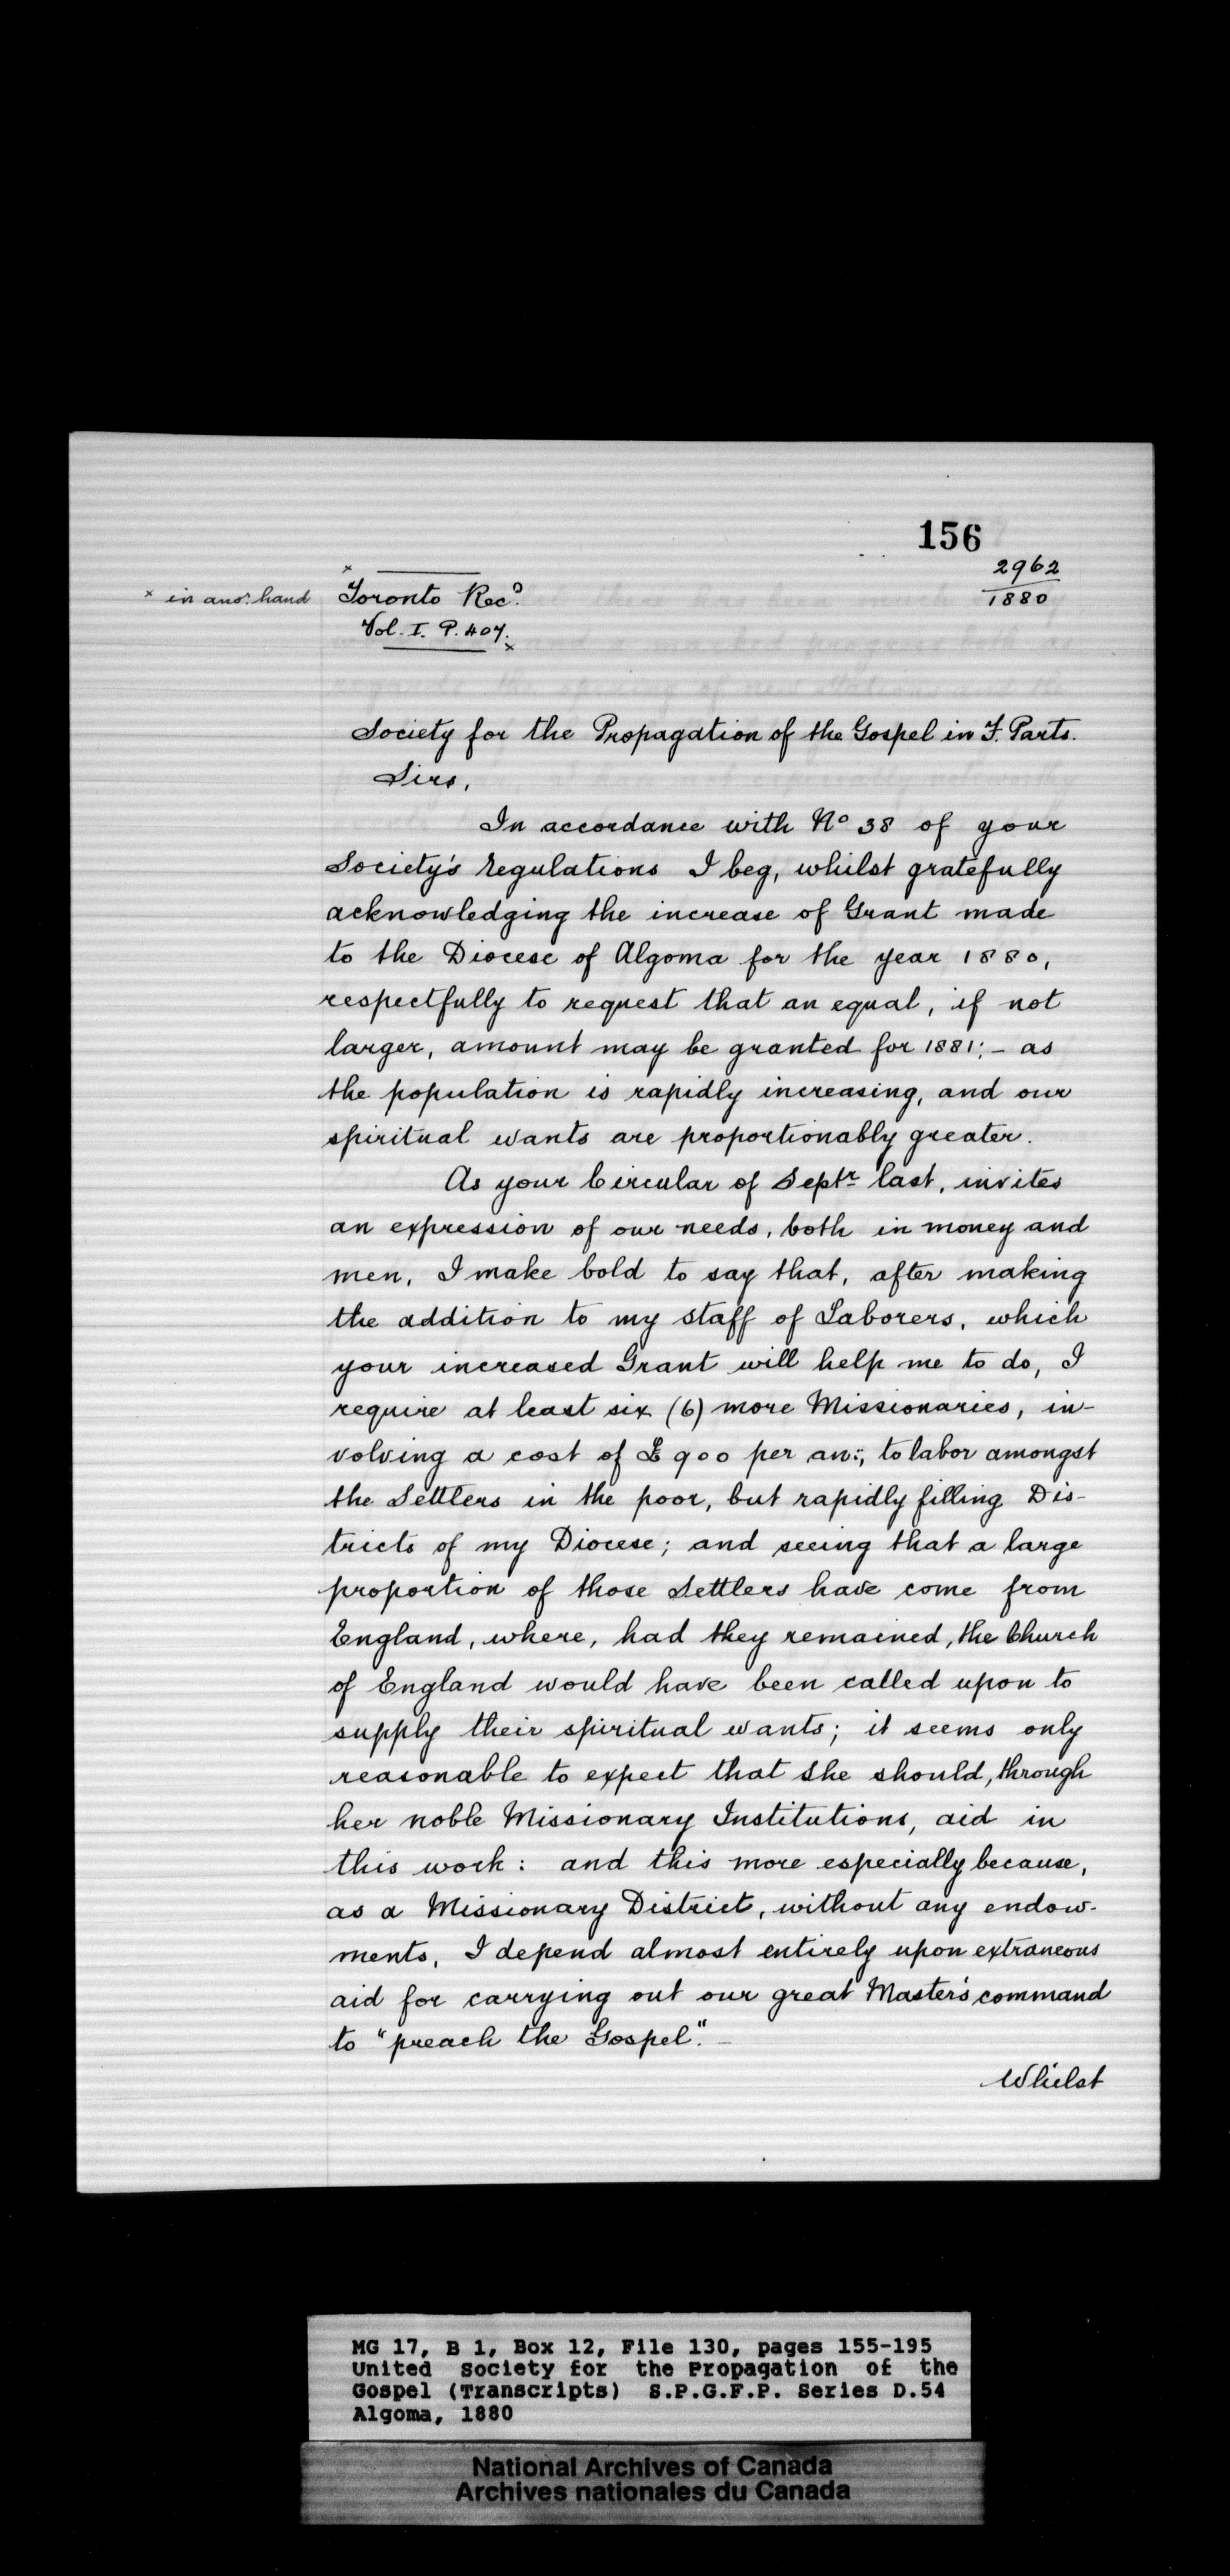 156
2962
1880
× in anor. hand
× Toronto Recd.
Vol. I. P. 407. ×
Society for the Propagation of the Gospel in F. Parts.
Sirs,
In accordance with No 38 of your
Society's regulations I beg, whilst gratefully
acknowledging the increase of Grant made
to the Diocese of Algoma for the year 1880,
respectfully to request that an equal, if not
larger, amount may be granted for 1881; - as
the population is rapidly increasing, and our
spiritual wants are proportionably greater.
As your Circular of Septr last, invites
an expression of our needs, both in money and
men, I make bold to say that, after making
the addition to my staff of Laborers, which
your increased Grant will help me to do, I
require at least six (6) more Missionaries, in-
volving a cost of £900 per an:, to labor amongst
the Settlers in the poor, but rapidly filling Dis-
tricts of my Diocese; and seeing that a large
proportion of those Settlers have come from
England, where, had they remained, the Church
of England would have been called upon to
supply their spiritual wants; it seems only
reasonable to expect that she should, through
her noble Missionary Institutions, aid in
this work: and this more especially because,
as a Missionary District, without any endow-
ments, I depend almost entirely upon extraneous
aid for carrying out our great Master's command
to "preach the Gospel". -
Whilst
MG 17, B 1, Box 12, File 130, pages 155-195
United Society for the Propagation of the
Gospel (Transcripts) S.P.G.F.P. Series D.54
Algoma, 1880
National Archives of Canada
Archives nationales du Canada